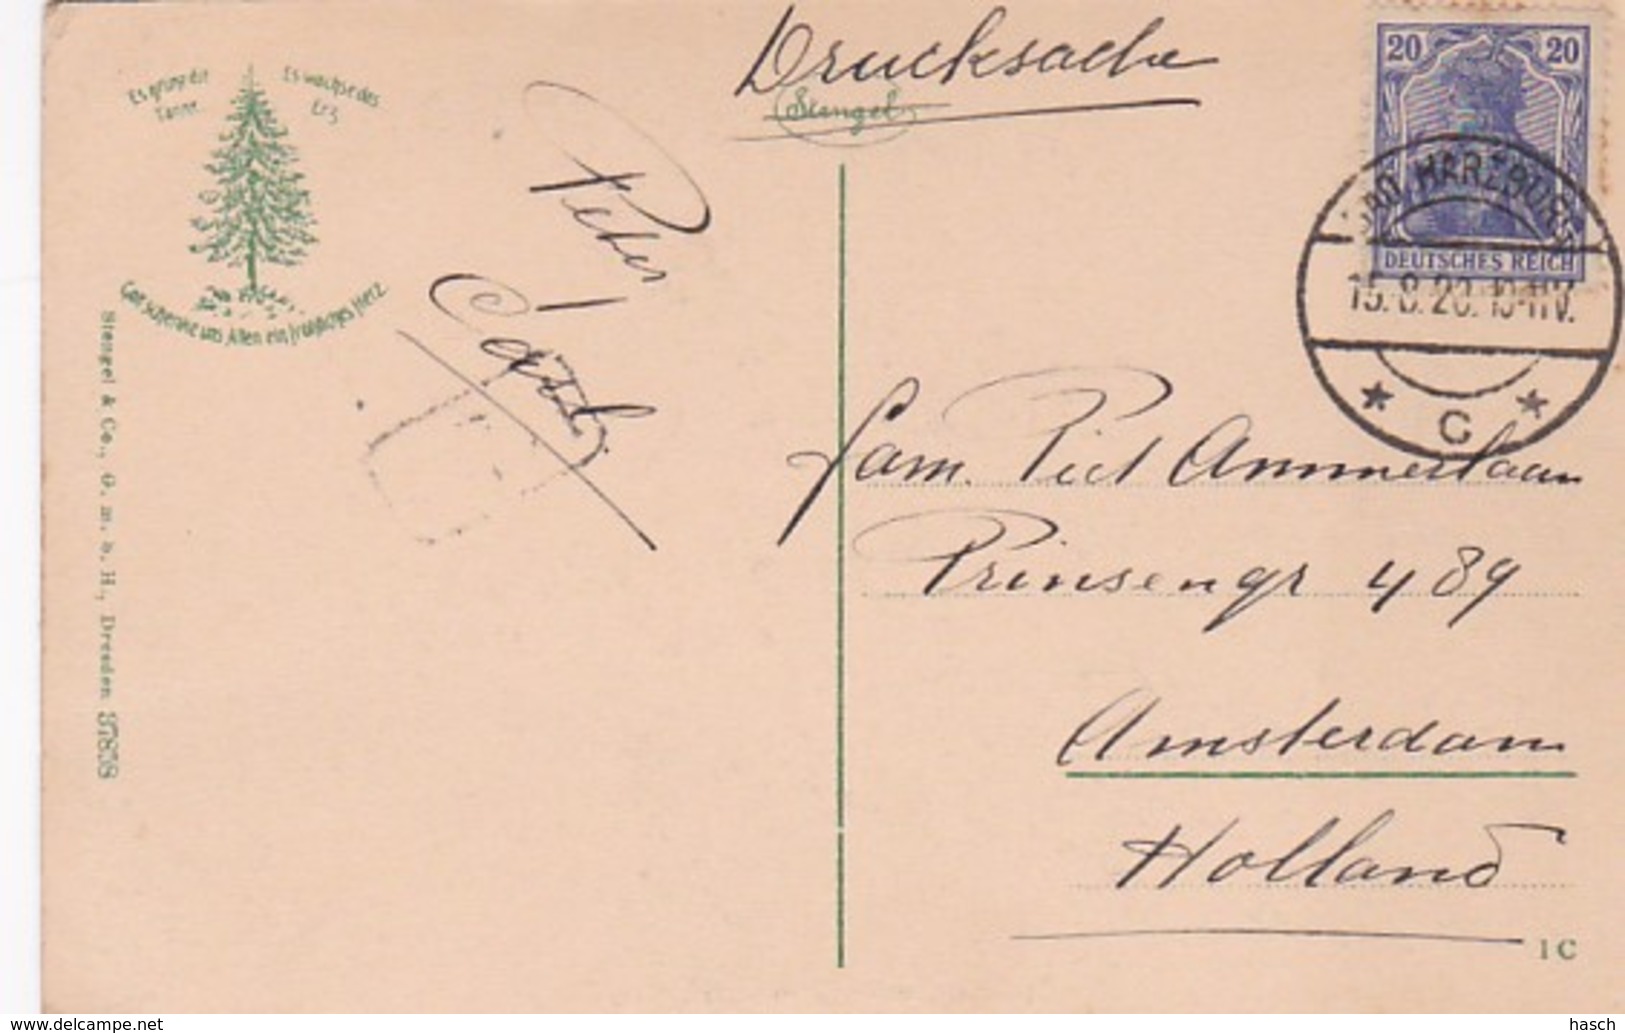 Drucksache
Stengel
Es grüne die
Tanne
Es wachse das
Erz
Gott schenke uns Allen ein fröhliches Herz
Stengel & Co., G. m. b. H., Dresden 37838
Peter
20 20
DEUTSCHES REICH
BAD HARZBURG
15.8.20. 10-11V.
* C *
Fam. Piet Ammerlaan
Prinsengr 489
Amsterdam
Holland
1 C
www.delcampe.net
hasch